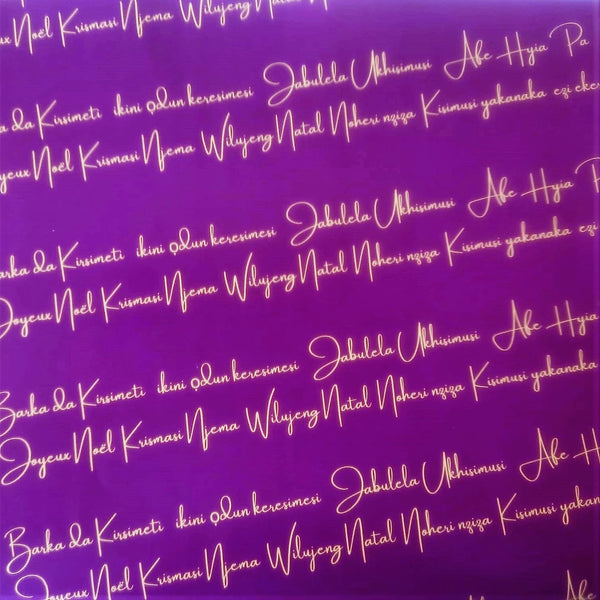 Joyeux Noël Krismasi Njema Wilujeng Natal N
Barka da Kirsimeti ikini ọdun keresimesi Jabulela Ukhisimusi Afe Hyia Pa
Joyeux Noël Krismasi Njema Wilujeng Natal Noheri nziza Kisimusi yakanaka ezi eke
Barka da Kirsimeti ikini ọdun keresimesi Jabulela Ukhisimusi Afe Hyia P
Joyeux Noël Krismasi Njema Wilujeng Natal Noheri nziza Kisimusi yakanaka ezi
Barka da Kirsimeti ikini ọdun keresimesi Jabulela Ukhisimusi Afe Hyia
Joyeux Noël Krismasi Njema Wilujeng Natal Noheri nziza Kisimusi yakanaka
Barka da Kirsimeti ikini ọdun keresimesi Jabulela Ukhisimusi Afe H
Joyeux Noël Krismasi Njema Wilujeng Natal Noheri nziza Kisimusi yakan